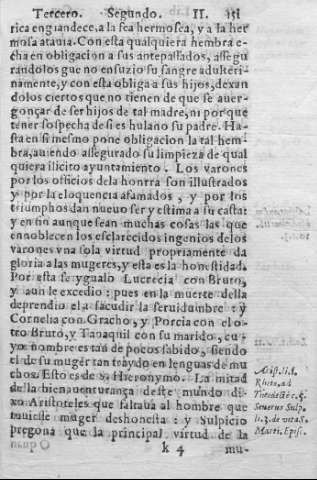 Tercero. Segundo. II. 151
rica engrandece, a la fea hermosea, y a la her
mosa atauia. Con esta qualquiera hembra e-
cha en obligacion a sus antepassados, assegu
randolos que no ensuzio su sangre adulteri-
namente, y con esta obliga a sus hijos, dexan
dolos ciertos que no tienen de que se auer-
gonçar de ser hijos de tal madre, ni por que
tener sospecha de si es hulano su padre. Ha-
sta en si mesmo pone obligacion la tal hem-
bra, auiendo assegurado su limpieza de qual
quiera ilicito ayuntamiento. Los varones
por los officios de la honrra son illustrados
y por la eloquencia afamados, y por los
triumphos dan nueuo ser y estima a su casta:
y en fin aunque sean muchas cosas las que
ennoblecen los esclarecidos ingenios de los
varones vna sola virtud propriamente da
gloria a las mugeres, y esta es la honestidad.
Por esta se ygualo Lucrecia con Bruto,
y aun le excedio: pues en la muerte della
deprendio el a sacudir la seruidumbre: y
Cornelia con Gracho, y Porcia con el o-
tro Bruto, y Tanaquil con su marido, cu-
yo nombre es tan de pocos sabido, siendo
el de su muger tan traydo en lenguas de mu
chos. Esto es de S. Hieronymo. La mitad
de la bienauenturança deste mundo di-
xo Aristoteles que faltaua al hombre que
tuuiesse muger deshonesta: y Sulpicio
pregona que la principal virtud de la
k 4 mu-
Arist. li. 1.
Rheto. ad
Theode & c. 5.
Seuerus Sulp.
li. 2. de vita S.
Marti. Episc.